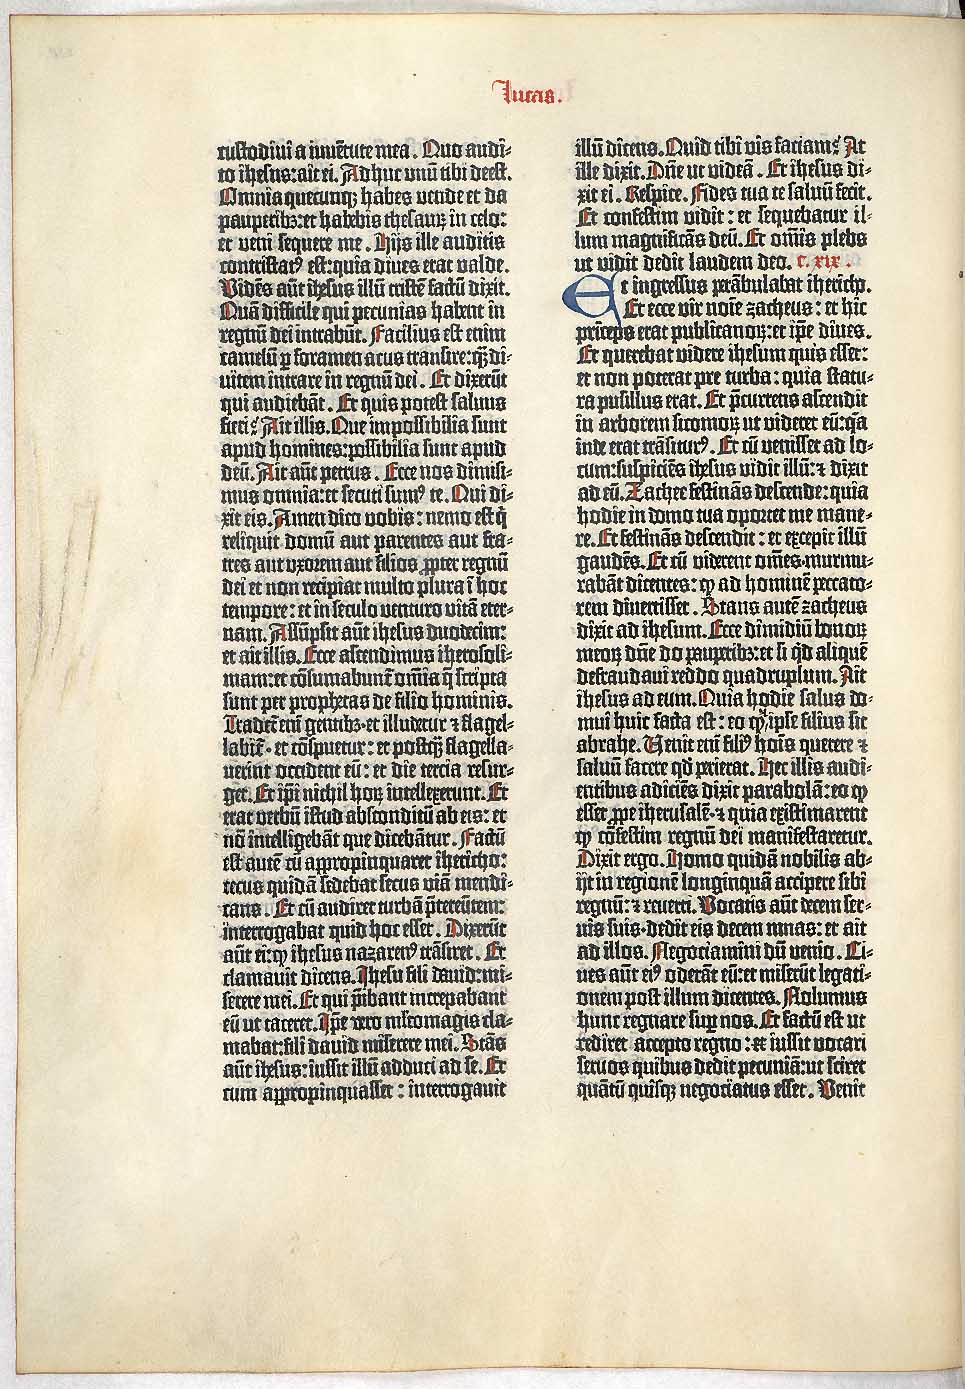 Lucas.
custodiui a iuuētute mea. Quo audi-
to ihesus: ait ei. Adhuc unū tibi deest.
Omnia quecunqꝫ habes uende et da
pauperibꝫ: et habebis thesauꝝ in celo:
et veni sequere me. Hijs ille auditis
contristatꝰ est: quia diues erat valde.
Vidēs aūt ihesus illū tristē factū dixit.
Quā difficile qui pecunias habent in
regnū dei intrabūt. Facilius est enim
camelū ꝑ foramen acus transire: qꝫ̄ di-
uitem intrare in regnū dei. Et dixerūt
qui audiebāt. Et quis potest saluus
fieri? Ait illis. Que impossibilia sunt
apud homines: possibilia sunt apud
deū. Ait aūt petrus. Ecce nos dimisi-
mus omnia: et secuti sumꝰ te. Qui di-
xit eis. Amen dico vobis: nemo est q̄
reliquit domū aut parentes aut fra-
tres aut vxorem aut filios ꝓpter regnū
dei et non recipiat multo plura ī hoc
tempore: et in seculo venturo vitā eter-
nam. Assūpsit aūt ihesus duodecim:
et ait illis. Ecce ascendimus iherosoli-
mam: et cōsumabunt̄ om̄ia q̄ scripta
sunt per prophetas de filio hominis.
Tradet̄ em̄ gentibꝫ· et illudetur ⁊ flagel-
labit̄· et cōspuetur: et postqꝫ̄ flagella-
uerint occident eū: et die tercia resur-
get. Et ip̄i nichil hoꝝ intellexerunt. Et
erat verbū istud absconditū ab eis: et
nō intelligebāt que dicebātur. Factū
est autē cū appropinquaret ihericho:
cecus quidā sedebat secus viā mendi-
cans. Et cū audiret turbā p̄tereūtem:
interrogabat quid hoc esset. Dixerūt
aūt ei: ꝙ ihesus nazarenꝰ trāsiret. Et
clamauit dicens. Ihesu fili dauid: mi-
serere mei. Et qui p̄ibant increpabant
eū ut taceret. Ip̄e vero m̄tomagis cla-
mabat: fili dauid miserere mei. Stās
aūt ihesus: iussit illū adduci ad se. Et
cum appropinquasset: interrogauit
illū dicens. Quid tibi vis faciam? At
ille dixit. Dn̄e ut videā. Et ihesus di-
xit ei. Respice. Fides tua te saluū fecit.
Et confestim vidit: et sequebatur il-
lum magnificās deū. Et om̄is plebs
ut vidit dedit laudem deo. c. xix.
Et ingressus perābulabat ihericho.
Et ecce vir noīe zacheus: et hic
prīceps erat publicanoꝝ: et ip̄e diues.
Et querebat videre ihesum quis esset:
et non poterat pre turba: quia statu-
ra pusillus erat. Et p̄currens ascendit
in arborem sicomoꝝ ut videret eū: q̄a
inde erat trāsiturꝰ. Et cū venisset ad lo-
cum: suspiciēs ihesus vidit illū: ⁊ dixit
ad eū. Zachee festinās descende: quia
hodie in domo tua oportet me mane-
re. Et festinās descendit: et excepit illū
gaudēs. Et cū viderent om̄es· murmu-
rabāt dicentes: ꝙ ad hominē peccato-
rem diuertisset. Stans autē zacheus
dixit ad ihesum. Ecce dimidiū bonoꝝ
meoꝝ dn̄e do pauperibꝫ: et si qd̄ aliquē
defraudaui reddo quadruplum. Ait
ihesus ad eum. Quia hodie salus do-
mui huic facta est: eo ꝙ ipse filius sit
abrahe. Venit em̄ filiꝰ hoīs querere ⁊
saluū facere qd̄ perierat. Hec illis audi-
entibus adiciēs dixit parabolā: eo ꝙ
esset ꝓpe iherusalē· ⁊ quia existimarent
ꝙ cōfestim regnū dei manifestaretur.
Dixit ergo. Homo quidā nobilis ab-
ijt in regionē longinquā accipere sibi
regnū: ⁊ reuerti. Vocatis aūt decem ser-
uis suis· dedit eis decem mnas: et ait
ad illos. Negociamini dū venio. Ci-
ues aūt eiꝰ oderāt eū: et miserūt legati-
onem post illum dicentes. Nolumus
hunc regnare suꝑ nos. Et factū est ut
rediret accepto regno: et iussit vocari
seruos quibus dedit pecuniā: ut sciret
quātū quisqꝫ negociatus esset. Venit